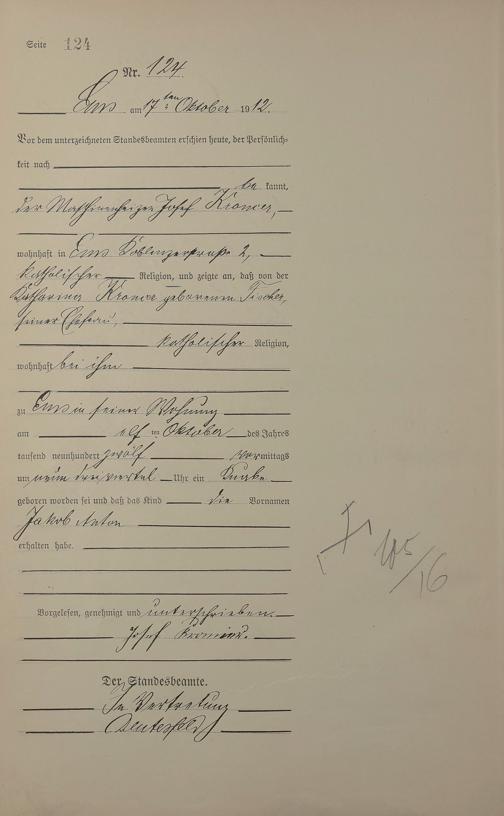 Seite 124
Nr. 124.
Ems am 17ten Oktober 1912.
Vor dem unterzeichneten Standesbeamten erschien heute, der Persönlich-
keit nach
be kannt,
der Maschinenheizer Josef
wohnhaft in Ems Koblenzerstraße 2,
katholischer Religion, und zeigte an, daß von der
Katharina geborenen Fischer,
seiner Ehefrau,
katholischer Religion,
wohnhaft bei ihm
zu Ems in seiner Wohnung
am elf ten Oktober des Jahres
tausend neunhundert zwölf vormittags
um neun dreiviertel Uhr ein Knabe
geboren worden sei und daß das Kind die Vornamen
Jakob Anton
erhalten habe.
Vorgelesen, genehmigt und unterschrieben.
Josef
Der Standesbeamte.
In Vertretung